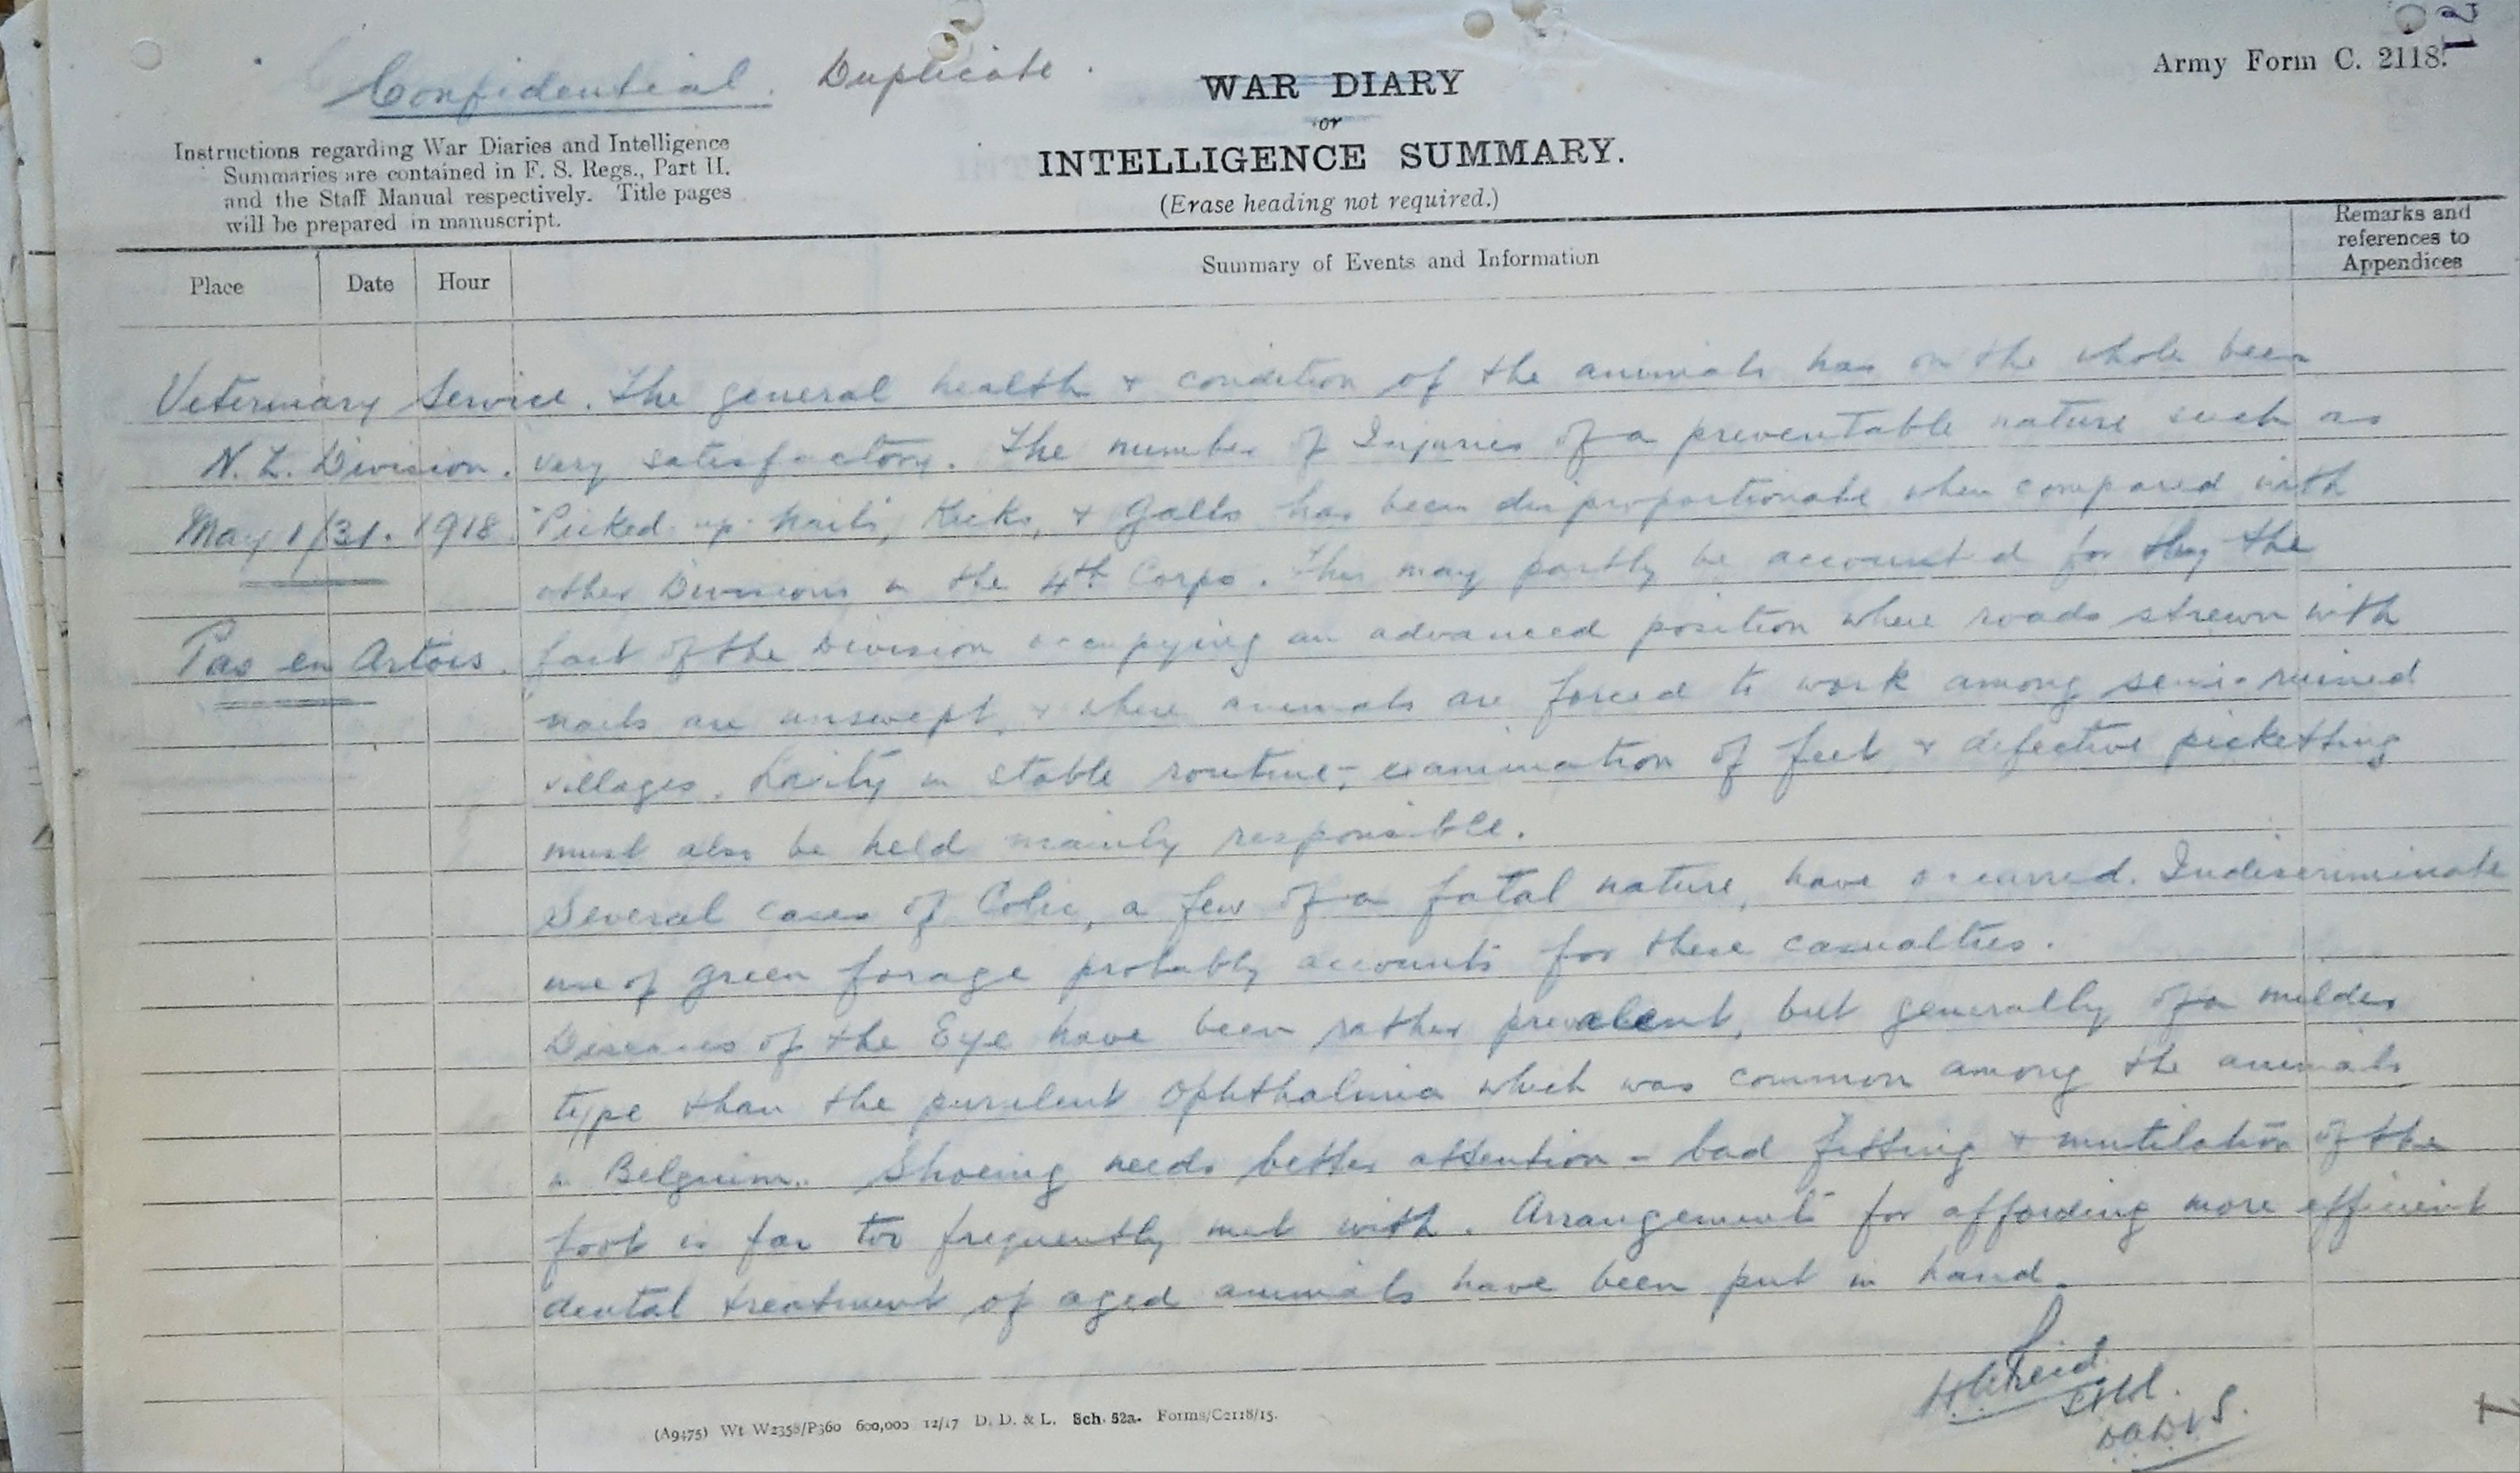 Confidential. Duplicate.
21
Army Form C. 2118.
WAR DIARY
or
INTELLIGENCE SUMMARY.
(Erase heading not required.)
Instructions regarding War Diaries and Intelligence
Summaries are contained in F. S. Regs., Part II.
and the Staff Manual respectively. Title pages
will be prepared in manuscript.
Place Date Hour Summary of Events and Information Remarks and
references to
Appendices
Veterinary Service. The general health & condition of the animals has on the whole been
N. Z. Division. very satisfactory. The number of Injuries of a preventable nature such as
May 1/31. 1918 "Picked-up-nails, Kicks, & Galls has been disproportionate when compared with
other Divisions in the 4th Corps. This may partly be accounted for by the
Pas en Artois. fact of the Division occupying an advanced position where roads strewn with
nails are unswept, & where animals are forced to work among semi-ruined
villages. Laxity in stable routine; examination of feet & defective pickething
must also be held mainly responsible.
Several cases of Colic, a few of a fatal nature, have occurred. Indiscriminate
use of green forage probably accounts for these casualties.
Diseases of the Eye have been rather prevalent, but generally of a milder
type than the purulent Ophthalmia which was common among the animals
in Belgium. Shoeing needs better attention - bad fitting & mutilation of the
foot is far too frequently met with. Arrangements for affording more efficient
dental treatment of aged animals have been put in hand.
Reid
D.A.D.V.S.
(A9475) Wt W2358/P360 600,000 12/17 D. D. & L. Sch. 52a. Forms/C2118/15.